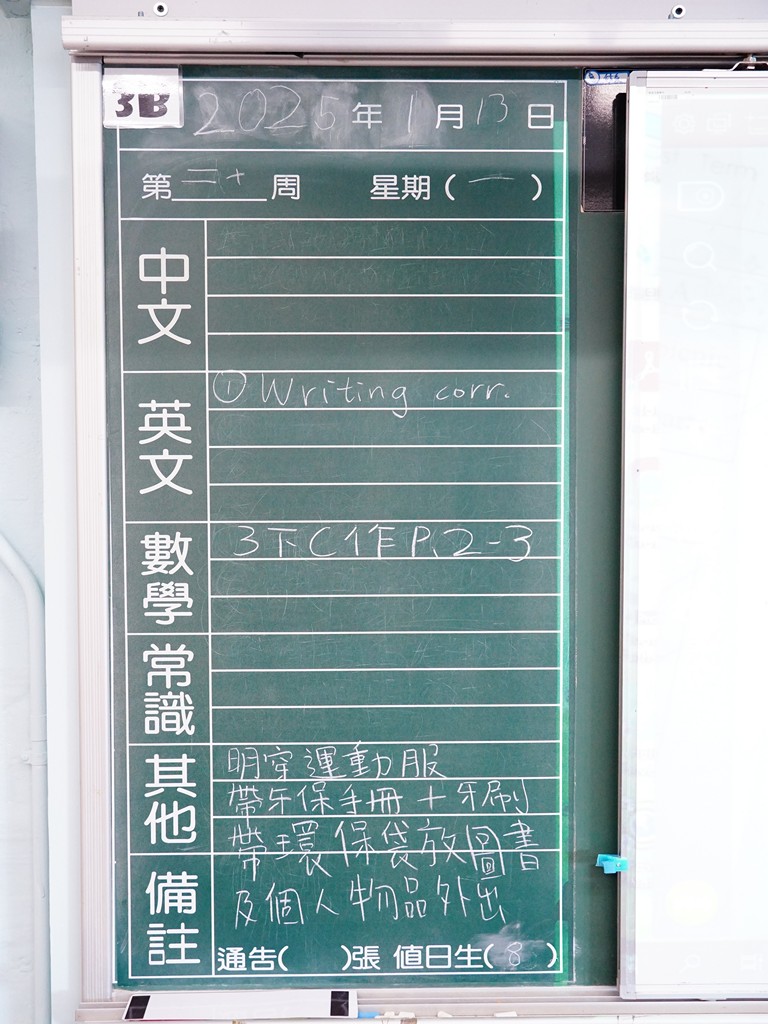 3B
2025年1月13日
第二十周 星期(一)
中文
英文
① Writing corr.
數學
3下C作P.2-3
常識
其他
明穿運動服
帶牙保手冊+牙刷
帶環保袋放圖書
備註
及個人物品外出
通告( )張 值日生(8)